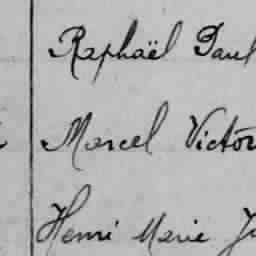 Raphaël Paul
Marcel Victor
Henri Marie